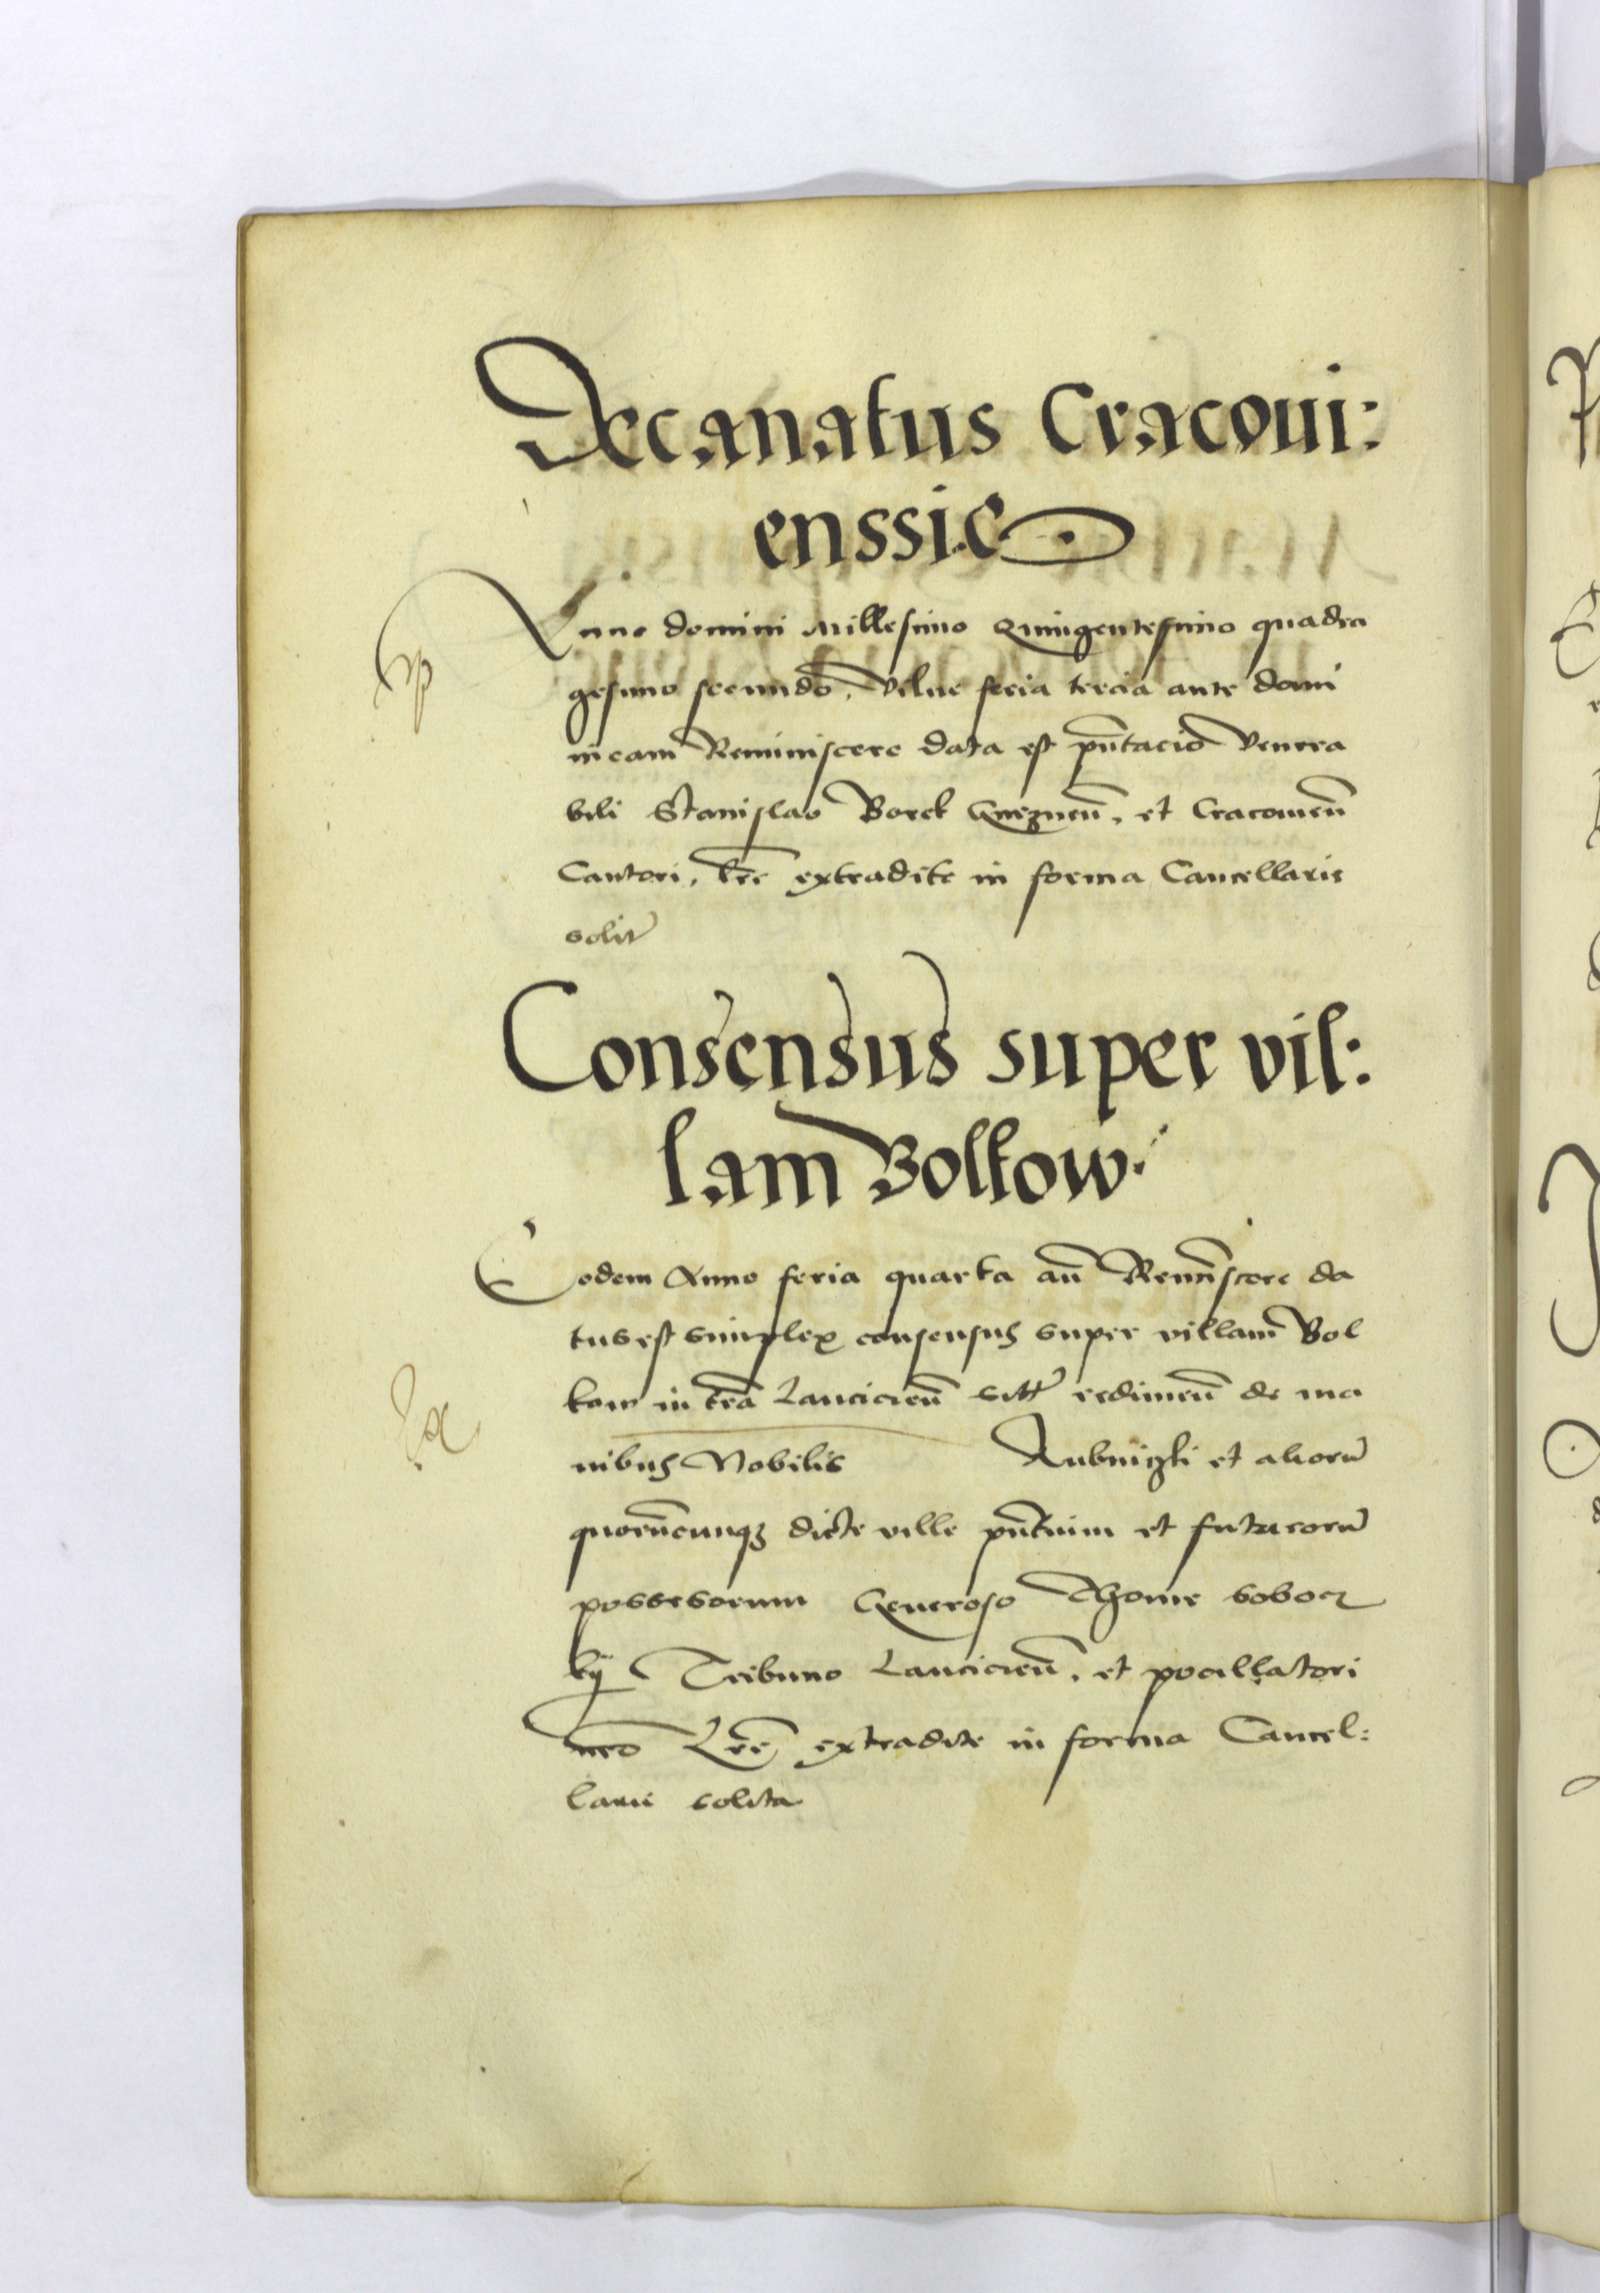 Decanatus Cracoui:
enssis
Anno domini Millesimo Quingentesimo quadra
gesimo secundo, Vilne feria tercia ante domi
nicam Reminiscere data est pn̄tacio Venera
bili Stanislao Borek Gneznen̄, et Cracouien̄
Cantori, lr̄e extradite in forma Cancellarie
solit
Consensus super vil:
lam Bolkow
Eodem Anno feria quarta an̄ Remīscere da
tus est simplex consensus super villam Bol
kow in tr̄a Lancicien̄ redimen̄ de ma
nibus Nobilis et aliorū
quorūcunqꝫ dicte ville pn̄tium et futurorū
possessorum Generoso Thome Soboc
kij Tribuno Lancicien̄, et pocillatori
nr̄o Lr̄e extradite in forma Cancel:
larie solita